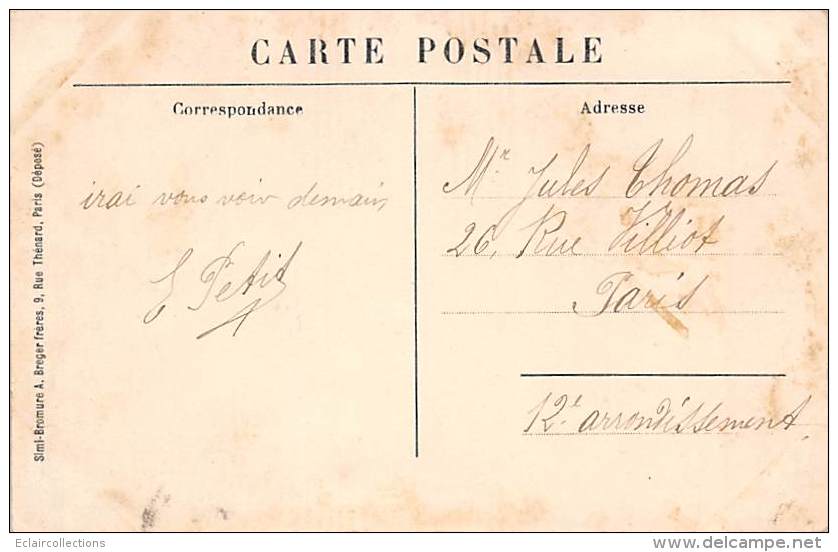 CARTE POSTALE
Correspondance
Adresse
irai vous voir demain,
E Petit
Mr Jules Thomas
26, Rue Villiot
Paris
12e arrondissement.
Simi-Bromure A. Breger frères, 9, Rue Thénard, Paris (Déposé)
Eclaircollections
www.delcampe.net